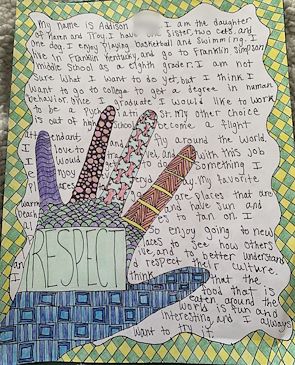 My name is Addison I am the daughter
of Karen and Troy. I have one sister, two cats, and
one dog. I enjoy playing basketball and swimming. I
live in Franklin Kentucky, and go to Franklin Simpson
Middle School as a eighth grader. I am not
sure what I want to do yet, but I think I
want to go to college to get a degree in human
behavior. Once I graduate I would like to work
to be a My other choice
is out of high school become a flight
attendant. and fly around the world.
I love to travel, and with this job
I would something I
enjoy day. My favorite
places are places that are
warm have sun and
beaches tan on I
so enjoy going to new
places to see how others
live, and to better understand
respect their culture.
I think that the
food that is
eaten around the
world is fun and
interesting, and I always
want to try it.
RESPECT